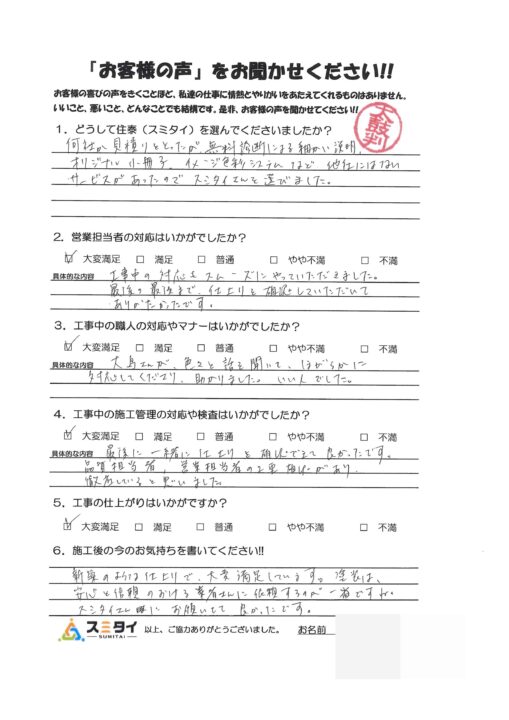 「お客様の声」をお聞かせください!!
お客様の喜びの声をきくことほど、私達の仕事に情熱とやりがいをあたえてくれるものはありません。
いいこと、悪いこと、どんなことでも結構です。是非、お客様の声を聞かせてください!!
太鼓判
1．どうして住泰（スミタイ）を選んでくださいましたか？
何社か見積りをとったが無料診断による細かい説明、
オリジナル小冊子、イメージ色彩システムなど他社にはない
サービスがあったのでスミタイさんを選びました。
2．営業担当者の対応はいかがでしたか？
☑ 大変満足 □ 満足 □ 普通 □ やや不満 □ 不満
具体的な内容 工事中の対応もスムーズにやっていただきました。
最後の最後まで、仕上りを確認していただいて
ありがたかったです。
3．工事中の職人の対応やマナーはいかがでしたか？
☑ 大変満足 □ 満足 □ 普通 □ やや不満 □ 不満
具体的な内容 大島さんが、色々と話を聞いて、ほがらかに
対応してくださり、助かりました。いい人でした。
4．工事中の施工管理の対応や検査はいかがでしたか？
☑ 大変満足 □ 満足 □ 普通 □ やや不満 □ 不満
具体的な内容 最後に一緒に仕上りを確認できて良かったです。
品質担当者、営業担当者の
徹底していると思いました
5．工事の仕上がりはいかがですか？
☑ 大変満足 □ 満足 □ 普通 □ やや不満 □ 不満
6．施工後の今のお気持ちを書いてください!!
新築のような仕上りで、大変満足しています。塗装は、
安心と信頼のおける業者さんに依頼するのが一番ですね。
スミタイさんにお願いして良かったです。
スミタイ SUMITAI 以上、ご協力ありがとうございました。 お名前